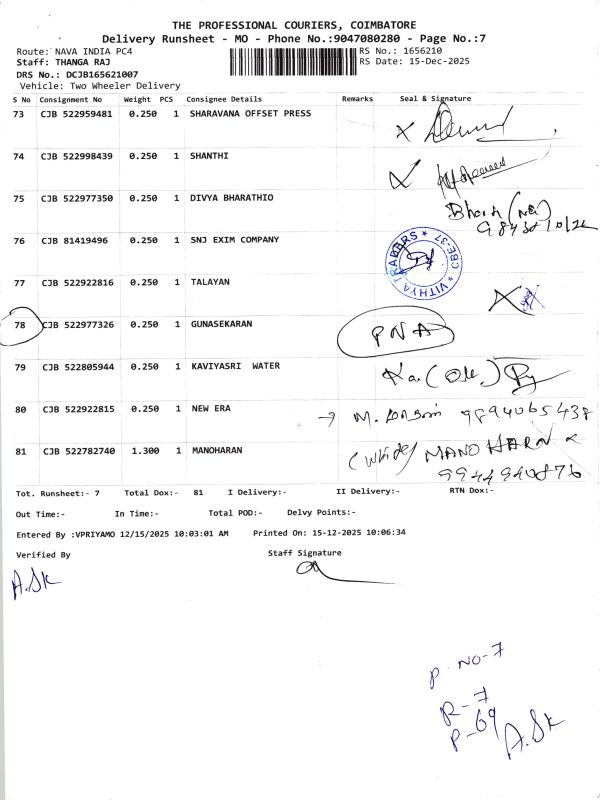 THE PROFESSIONAL COURIERS, COIMBATORE
Delivery Runsheet - MO - Phone No.:9047080280 - Page No.:7
Route: NAVA INDIA PC4 RS No.: 1656210
Staff: THANGA RAJ RS Date: 15-Dec-2025
DRS No.: DCJB165621007
Vehicle: Two Wheeler Delivery
S No Consignment No Weight PCS Consignee Details Remarks Seal & Signature
73 CJB 522959481 0.250 1 SHARAVANA OFFSET PRESS
74 CJB 522998439 0.250 1 SHANTHI
75 CJB 522977350 0.250 1 DIVYA BHARATHIO
76 CJB 81419496 0.250 1 SNJ EXIM COMPANY
VITHYA TRADERS CBE-37
77 CJB 522922816 0.250 1 TALAYAN
78 CJB 522977326 0.250 1 GUNASEKARAN PNA
79 CJB 522805944 0.250 1 KAVIYASRI WATER
80 CJB 522922815 0.250 1 NEW ERA 9894065438
81 CJB 522782740 1.300 1 MANOHARAN MANOHARN
9944940876
Tot. Runsheet:- 7 Total Dox:- 81 I Delivery:- II Delivery:- RTN Dox:-
Out Time:- In Time:- Total POD:- Delvy Points:-
Entered By :VPRIYAMO 12/15/2025 10:03:01 AM Printed On: 15-12-2025 10:06:34
Verified By Staff Signature
A.Sk
P. NO-7
R-7
P-69
A.Sk